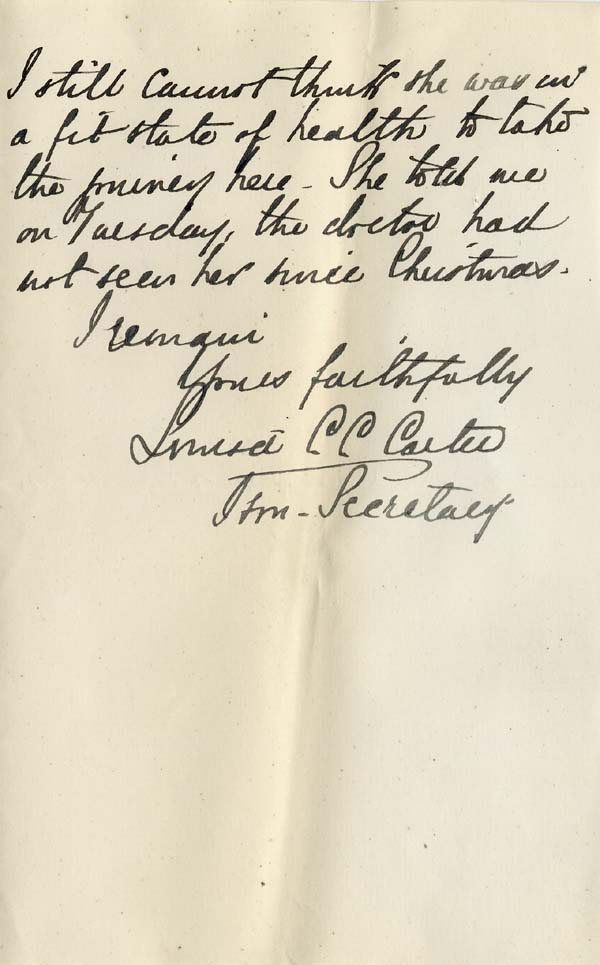 I still cannot think she was in
a fit state of health to take
the journey here - She told me
on Tuesday, the doctor had
not seen her since Christmas.
I remain
Yours faithfully
Louisa C C Carter
Hon - Secretary